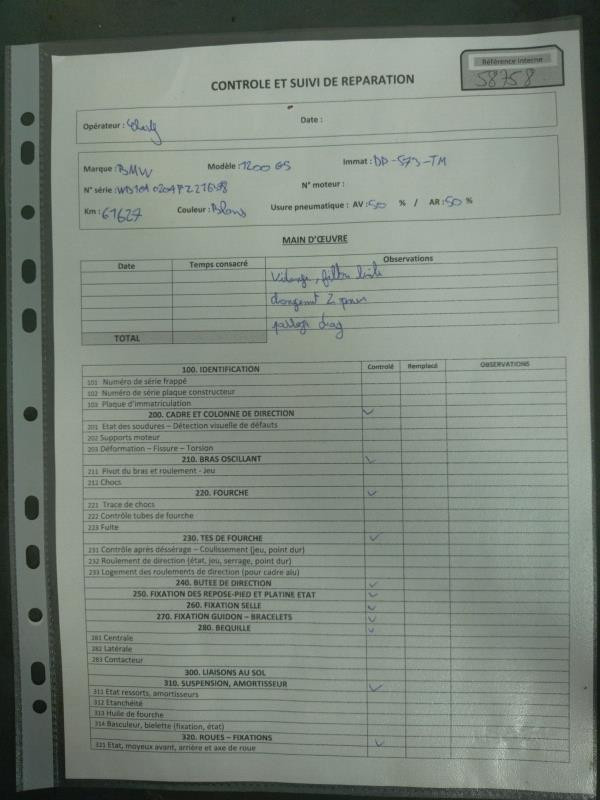 Référence interne
58758
CONTROLE ET SUIVI DE REPARATION
Opérateur : Date :
Marque : BMW Modèle : 1200 GS Immat : DD-573-TM
N° série : N° moteur :
Km : 61627 Couleur : Blanc Usure pneumatique : AV : 50 % / AR : 50 %
MAIN D'ŒUVRE
Date Temps consacré Observations
Vidange, filtre huile
changement 2 pneus
TOTAL
100. IDENTIFICATION Controlé Remplacé OBSERVATIONS
101 Numéro de série frappé
102 Numéro de série plaque constructeur
103 Plaque d'immatriculation
200. CADRE ET COLONNE DE DIRECTION
201 Etat des soudures – Détection visuelle de défauts
202 Supports moteur
203 Déformation – Fissure – Torsion
210. BRAS OSCILLANT
211 Pivot du bras et roulement - Jeu
212 Chocs
220. FOURCHE
221 Trace de chocs
222 Contrôle tubes de fourche
223 Fuite
230. TES DE FOURCHE
231 Contrôle après déssérage – Coulissement (jeu, point dur)
232 Roulement de direction (état, jeu, serrage, point dur)
233 Logement des roulements de direction (pour cadre alu)
240. BUTEE DE DIRECTION
250. FIXATION DES REPOSE-PIED ET PLATINE ETAT
260. FIXATION SELLE
270. FIXATION GUIDON – BRACELETS
280. BEQUILLE
281 Centrale
282 Latérale
283 Contacteur
300. LIAISONS AU SOL
310. SUSPENSION, AMORTISSEUR
311 Etat ressorts, amortisseurs
312 Etanchéité
313 Huile de fourche
314 Basculeur, bielette (fixation, état)
320. ROUES – FIXATIONS
321 Etat, moyeux avant, arrière et axe de roue